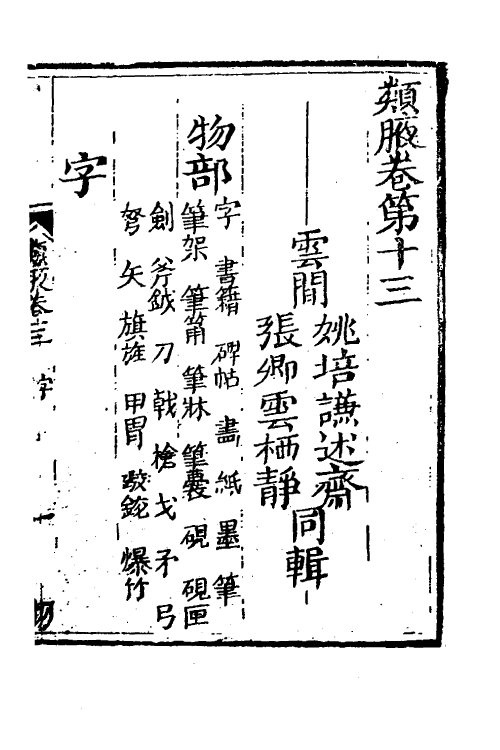 類腋卷第十三
雲間
姚培謙述齋
張卿雲栖靜
同輯
物部
字 書籍 碑帖 畵 紙 墨 筆
筆架 筆筩 筆牀 筆囊 硯 硯匣
劍 斧鉞 刀 戟 槍 戈 矛 弓
弩 矢 旗旌 甲胄 礮銃 爆竹
字
類腋卷十三 字